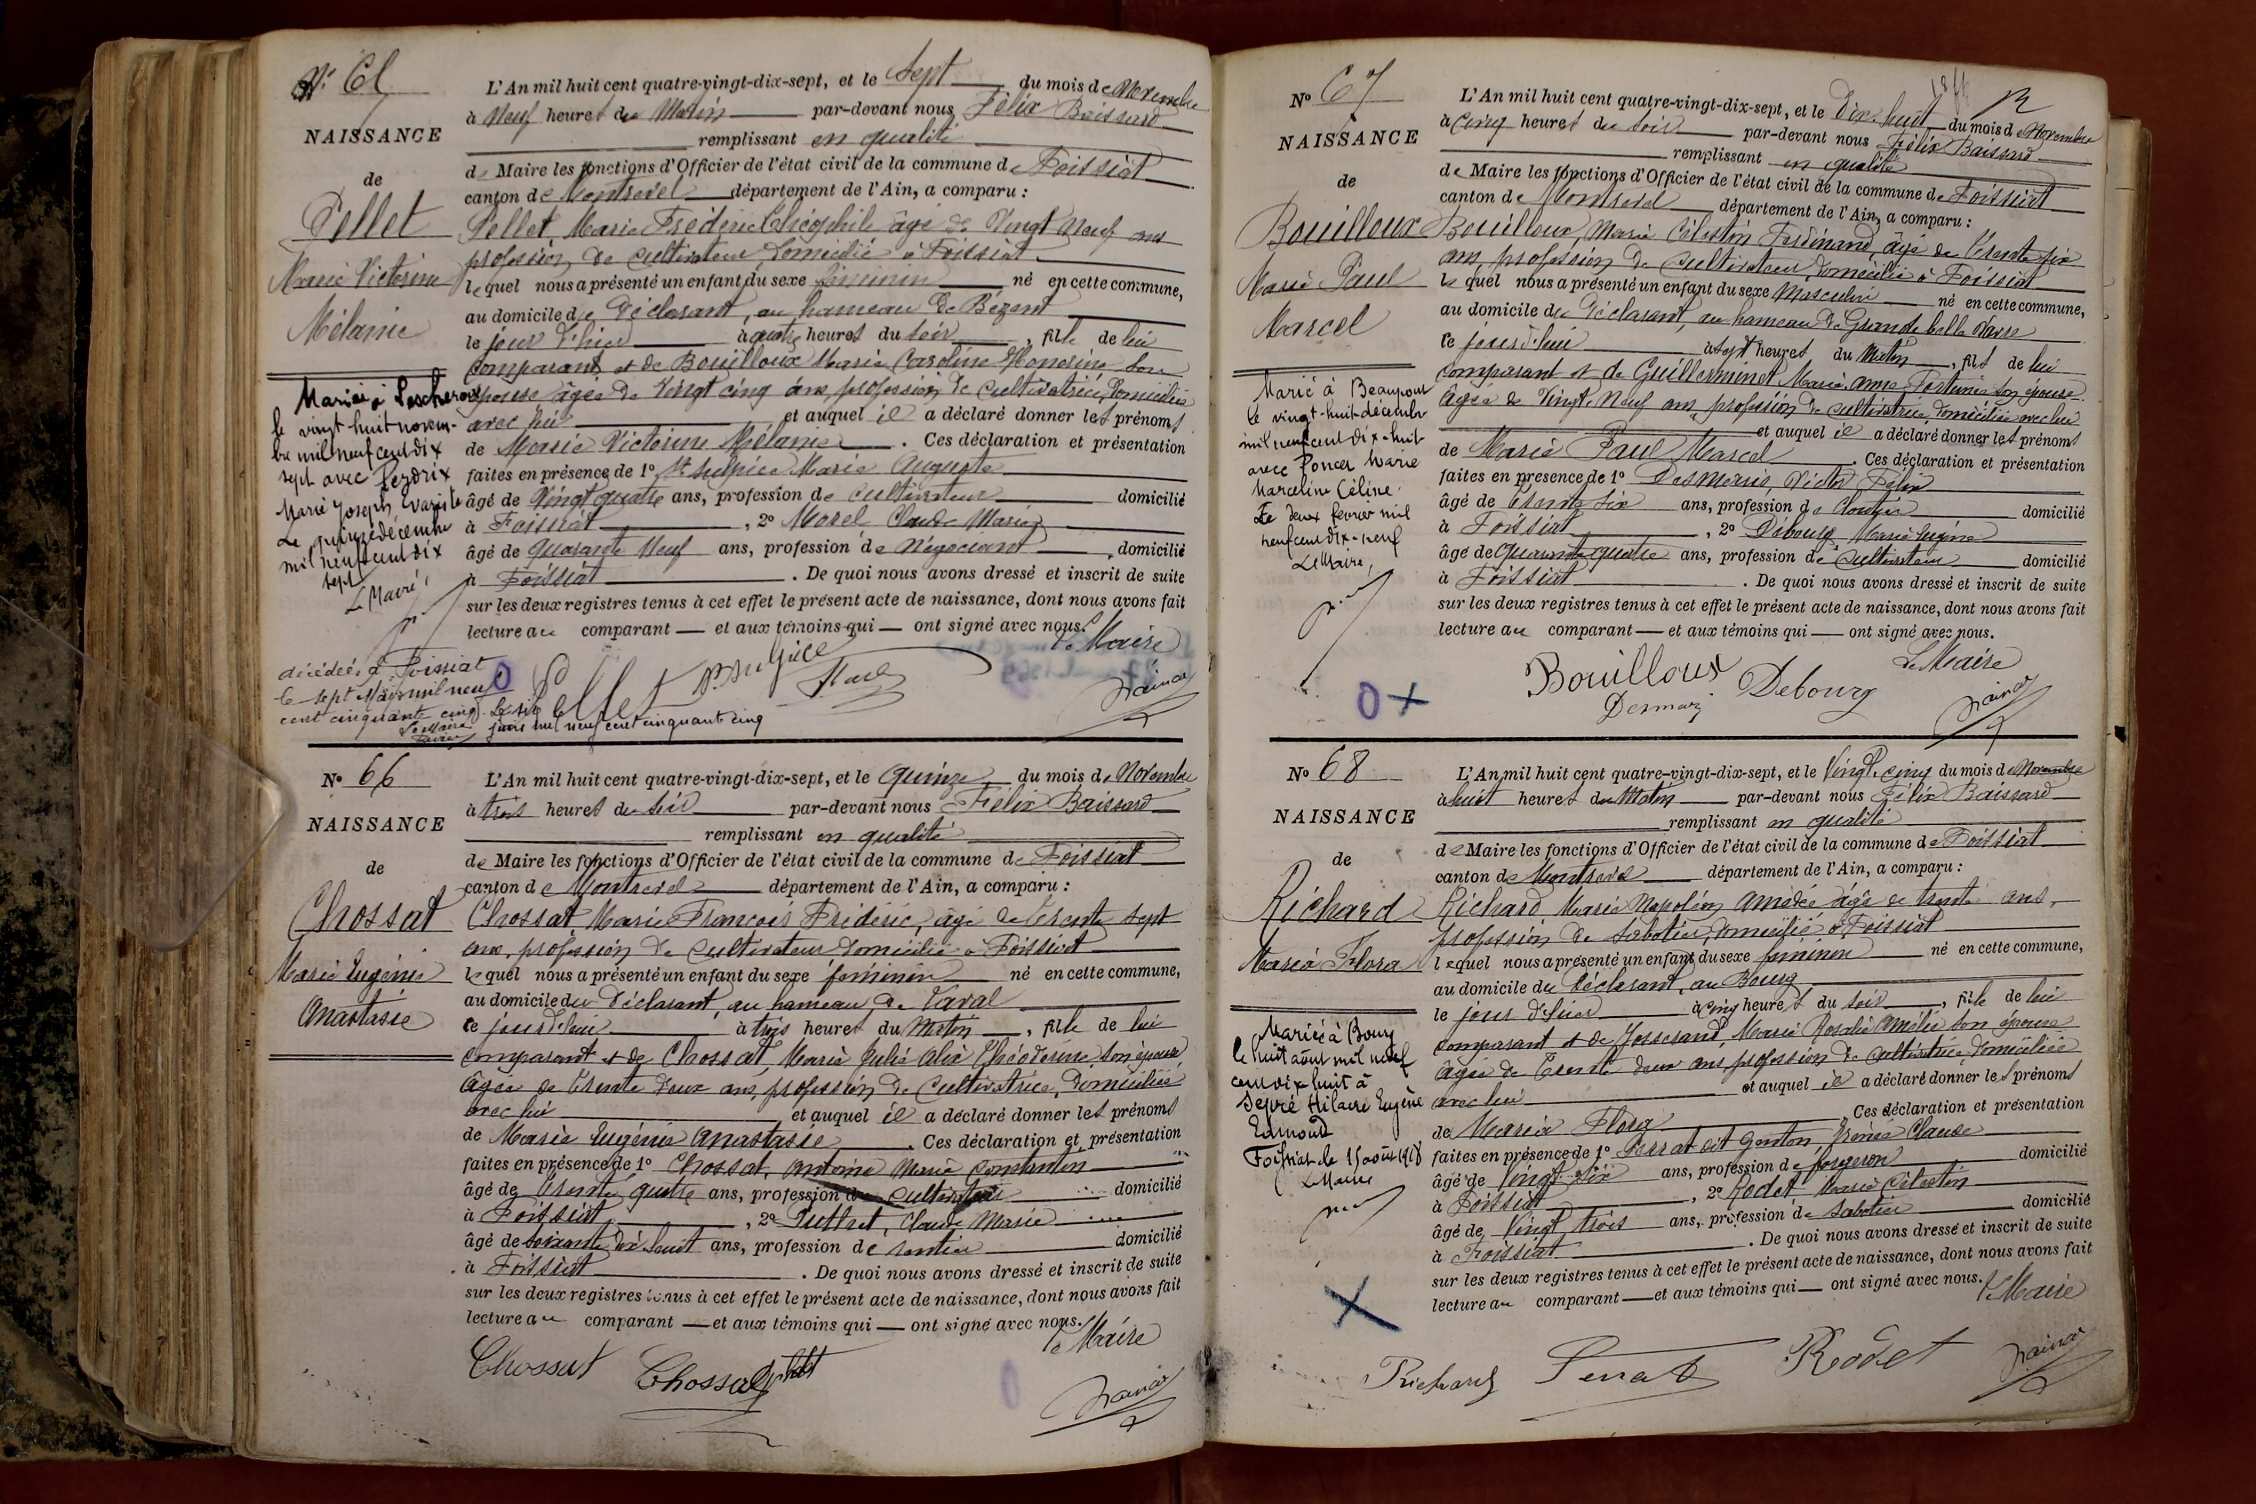 NAISSANCE
de
Pellet
Marie Victorine
Mélanie
L'An mil huit cent quatre-vingt-dix-sept, et le Sept du mois de Novembre
à Neuf heures du Matin par-devant nous Félix Baissard
remplissant en qualité
de Maire les fonctions d'Officier de l'état civil de la commune de Foissiat
canton de Montrevel département de l'Ain, a comparu :
Pellet, Marie Frédéric Théophile âgé de Vingt Neuf ans
profession de cultivateur domicilié à Foissiat
lequel nous a présenté un enfant du sexe féminin né en cette commune,
au domicile du déclarant, au hameau de
le jour d'hier à heures du soir, fille de lui
comparant et de Bouilloux Marie Caroline Honorine son
épouse âgée de Vingt cinq ans, profession de cultivatrice, domiciliée
avec lui et auquel il a déclaré donner les prénoms
de Marie Victorine Mélanie. Ces déclaration et présentation
faites en présence de 1º St Sulpice Marie Auguste
âgé de Vingt quatre ans, profession de cultivateur domicilié
à Foissiat, 2º Morel Claude Marie
âgé de Quarante Neuf ans, profession de Négociant, domicilié
à Foissiat. De quoi nous avons dressé et inscrit de suite
sur les deux registres tenus à cet effet le présent acte de naissance, dont nous avons fait
lecture au comparant — et aux témoins qui — ont signé avec nous.
Le Maire
Pellet
Mariée à Lescheroux
le vingt-huit novem-
bre mil neuf cent dix
sept avec Perdrix
Marie Joseph Evariste
Le quinze décembre
mil neuf cent dix
sept
Le Maire,
décédée à Foissiat
le sept Mars mil neuf
cent cinquante cinq. Le six
juin mil neuf cent cinquante cinq
Le Maire
Nº 66
NAISSANCE
de
Chossat
Marie Eugénie
Anastasie
L'An mil huit cent quatre-vingt-dix-sept, et le Quinze du mois de Novembre
à trois heures du soir par-devant nous Félix Baissard
remplissant en qualité
de Maire les fonctions d'Officier de l'état civil de la commune de Foissiat
canton de Montrevel département de l'Ain, a comparu :
Chossat, Marie François Frédéric, âgé de trente sept
ans, profession de cultivateur domicilié à Foissiat
lequel nous a présenté un enfant du sexe féminin né en cette commune,
au domicile du déclarant, au hameau de
ce jourd'hui à trois heures du Matin, fille de lui
comparant et de Chossat, Marie Julie Alix Théodorine son épouse
âgée de trente deux ans, profession de cultivatrice, domiciliée
avec lui et auquel il a déclaré donner les prénoms
de Marie Eugénie Anastasie. Ces déclaration et présentation
faites en présence de 1º Chossat, Antoine Marie Constantin
âgé de trente quatre ans, profession de cultivateur domicilié
à Foissiat, 2º Claude Marie
âgé de soixante dix huit ans, profession de rentier domicilié
à Foissiat. De quoi nous avons dressé et inscrit de suite
sur les deux registres tenus à cet effet le présent acte de naissance, dont nous avons fait
lecture au comparant — et aux témoins qui — ont signé avec nous.
Le Maire
Chossat
Nº 67
NAISSANCE
de
Bouilloux
Marie Paul
Marcel
L'An mil huit cent quatre-vingt-dix-sept, et le Dix huit du mois de Novembre
à Cinq heures du soir par-devant nous Félix Baissard
remplissant en qualité
de Maire les fonctions d'Officier de l'état civil de la commune de Foissiat
canton de Montrevel département de l'Ain, a comparu :
Bouilloux, Marie Célestin Ferdinand, âgé de trente six
ans, profession de cultivateur, domicilié à Foissiat
lequel nous a présenté un enfant du sexe Masculin né en cette commune,
au domicile du déclarant, au hameau de Grande
ce jourd'hui à sept heures du Matin, fils de lui
comparant et de Guillerminet Marie Anne son épouse
âgée de Vingt Neuf ans, profession de cultivatrice domiciliée avec lui
et auquel il a déclaré donner les prénoms
de Marie Paul Marcel. Ces déclaration et présentation
faites en présence de 1º Desmaris Victor Félix
âgé de trente six ans, profession de domicilié
à Foissiat, 2º Debourg Marie Eugène
âgé de Quarante quatre ans, profession de cultivateur domicilié
à Foissiat. De quoi nous avons dressé et inscrit de suite
sur les deux registres tenus à cet effet le présent acte de naissance, dont nous avons fait
lecture au comparant — et aux témoins qui — ont signé avec nous.
Le Maire
Bouilloux
Debourg
Marié à Beaupont
le vingt-huit décembre
mil neuf cent dix-huit
avec Poncet Marie
Marceline Céline.
Le deux février mil
neuf cent dix-neuf
Le Maire,
Nº 68
NAISSANCE
de
Richard
Maria Flora
L'An mil huit cent quatre-vingt-dix-sept, et le Vingt cinq du mois de Novembre
à huit heures du Matin par-devant nous Félix Baissard
remplissant en qualité
de Maire les fonctions d'Officier de l'état civil de la commune de Foissiat
canton de Montrevel département de l'Ain, a comparu :
Richard Marie Napoléon Amédée âgé de trente ans,
profession de sabotier, domicilié à Foissiat
lequel nous a présenté un enfant du sexe féminin né en cette commune,
au domicile du déclarant, au Bourg
le jour d'hier à cinq heures du soir, fille de lui
comparant et de Josserand Marie Rosalie Amélie son épouse
âgée de trente deux ans profession de cultivatrice, domiciliée
avec lui et auquel il a déclaré donner les prénoms
de Maria Flora. Ces déclaration et présentation
faites en présence de 1º Perrat dit Genton, Claude
âgé de Vingt Six ans, profession de forgeron domicilié
à Foissiat, 2º Rodet Marie Célestin
âgé de Vingt trois ans, profession de sabotier domicilié
à Foissiat. De quoi nous avons dressé et inscrit de suite
sur les deux registres tenus à cet effet le présent acte de naissance, dont nous avons fait
lecture au comparant — et aux témoins qui — ont signé avec nous.
Le Maire
Richard
Perrat
Rodet
Mariée à Bourg
le huit août mil neuf
cent dix huit à
Hilaire Eugène
Edmond
Foissiat le 15 août 1918
Le Maire